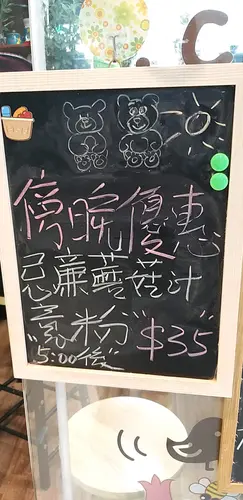 C
傍晚優惠
忌廉蘑菇汁
意粉"$35"
"5:00後"